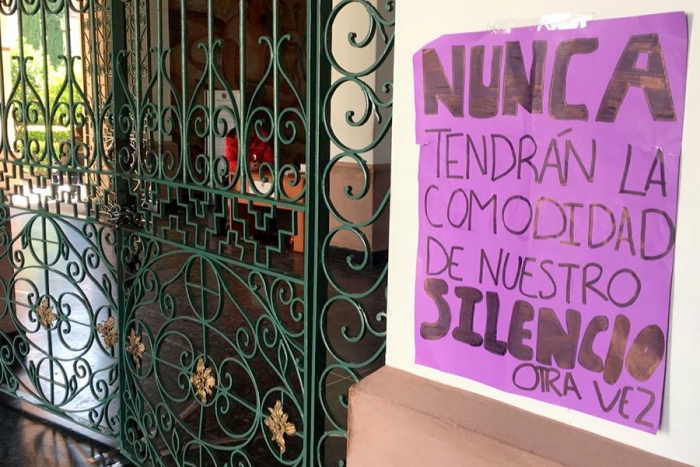 NUNCA
TENDRÁN LA
COMODIDAD
DE NUESTRO
SILENCIO
OTRA VEZ